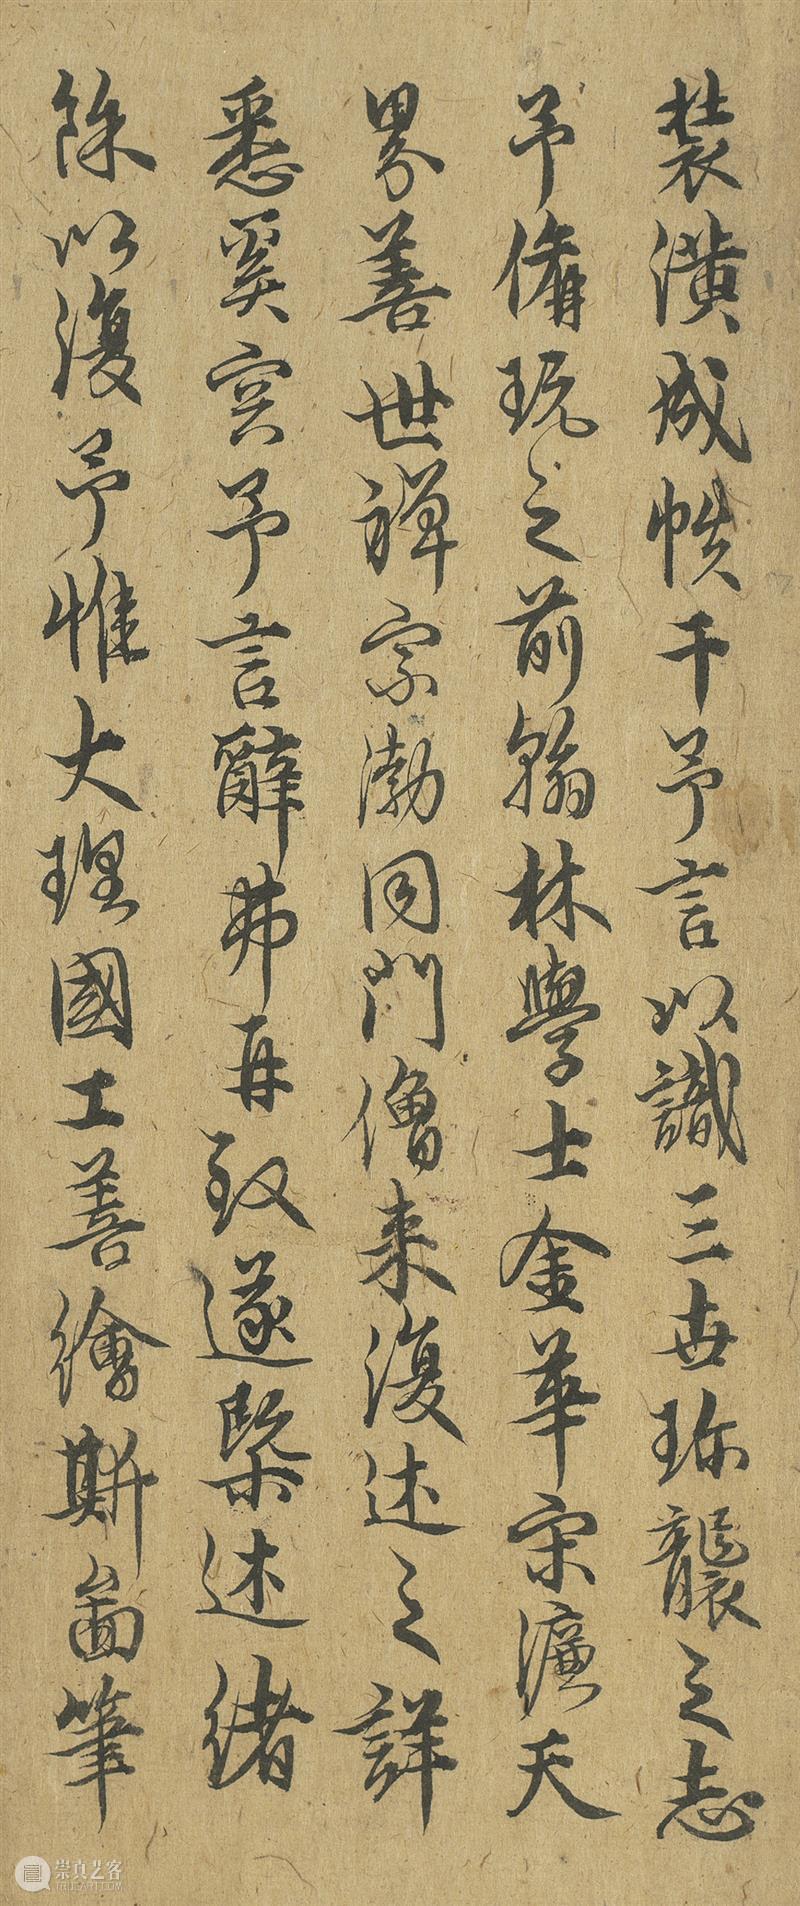 裝潢成帙干予言以識三世珎襲之志
予備玩之前翰林學士金華宋濂天
界善世禪宗泐同門僧来復述之詳
悉奚容予言辭弗再致遂槩述緒
餘以復予惟大理國工善繪斯啚筆
崇真艺客
TRUEART.COM